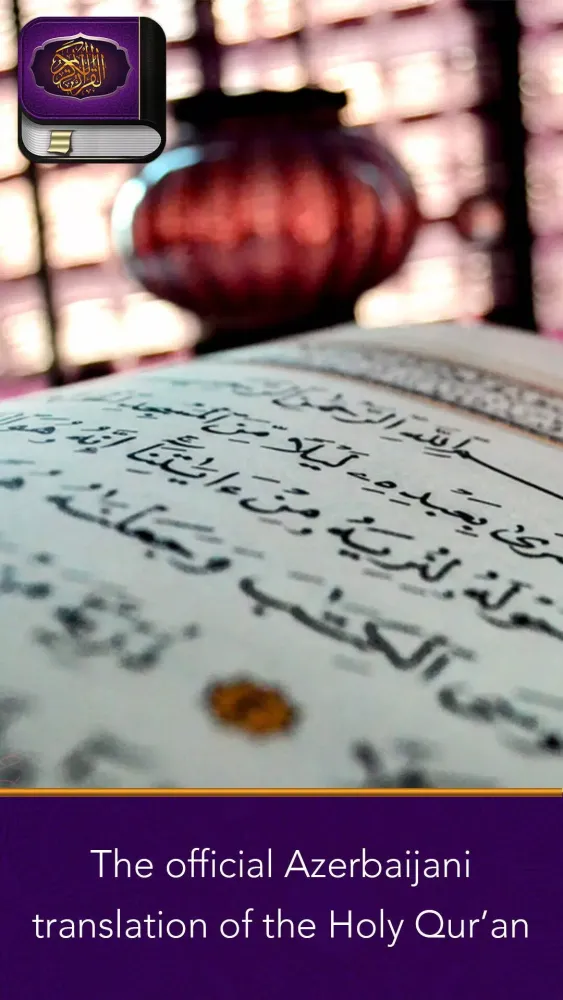 القرآن الكريم
ـسم اللَّهِ الرَّحْمٰنِ الرَّحِيمِ
ـرىٰ بِعَبْدِهِۦ لَيْلًا مِّنَ الْمَسْجِدِ
ـوْلَهُ لِنُرِيَهُۥ مِنْ ءَايَٰتِنَا إِنَّهُۥ هُوَ
ـوسَى الْكِتَٰبَ وَجَعَلْنَٰهُ
The official Azerbaijani
translation of the Holy Qur’an